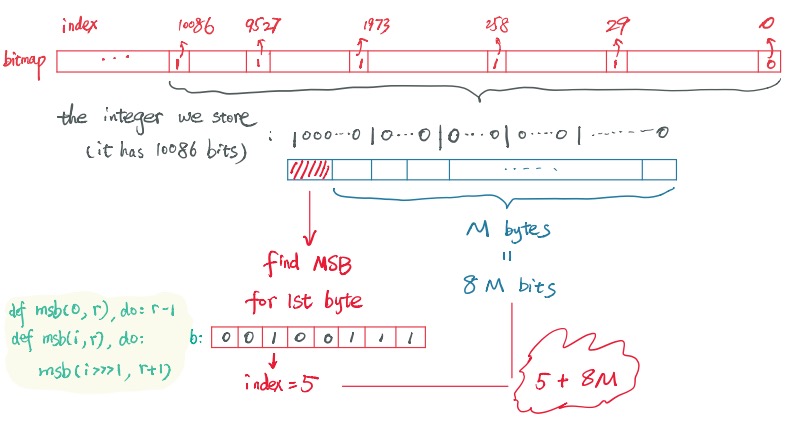 index 10086 9527 1973 258 29 0
bitmap ... 1 1 1 1 1 0
the integer we store
(it has 10086 bits) : 1000...0 | 0...0 | 0...0 | 0...0 | .......0
.....
M bytes
=
8M bits
find MSB
for 1st byte
def msb(0, r), do: r-1
def msb(i, r), do:
msb(i>>>1, r+1)
b: 0 0 1 0 0 1 1 1
index = 5
5 + 8M